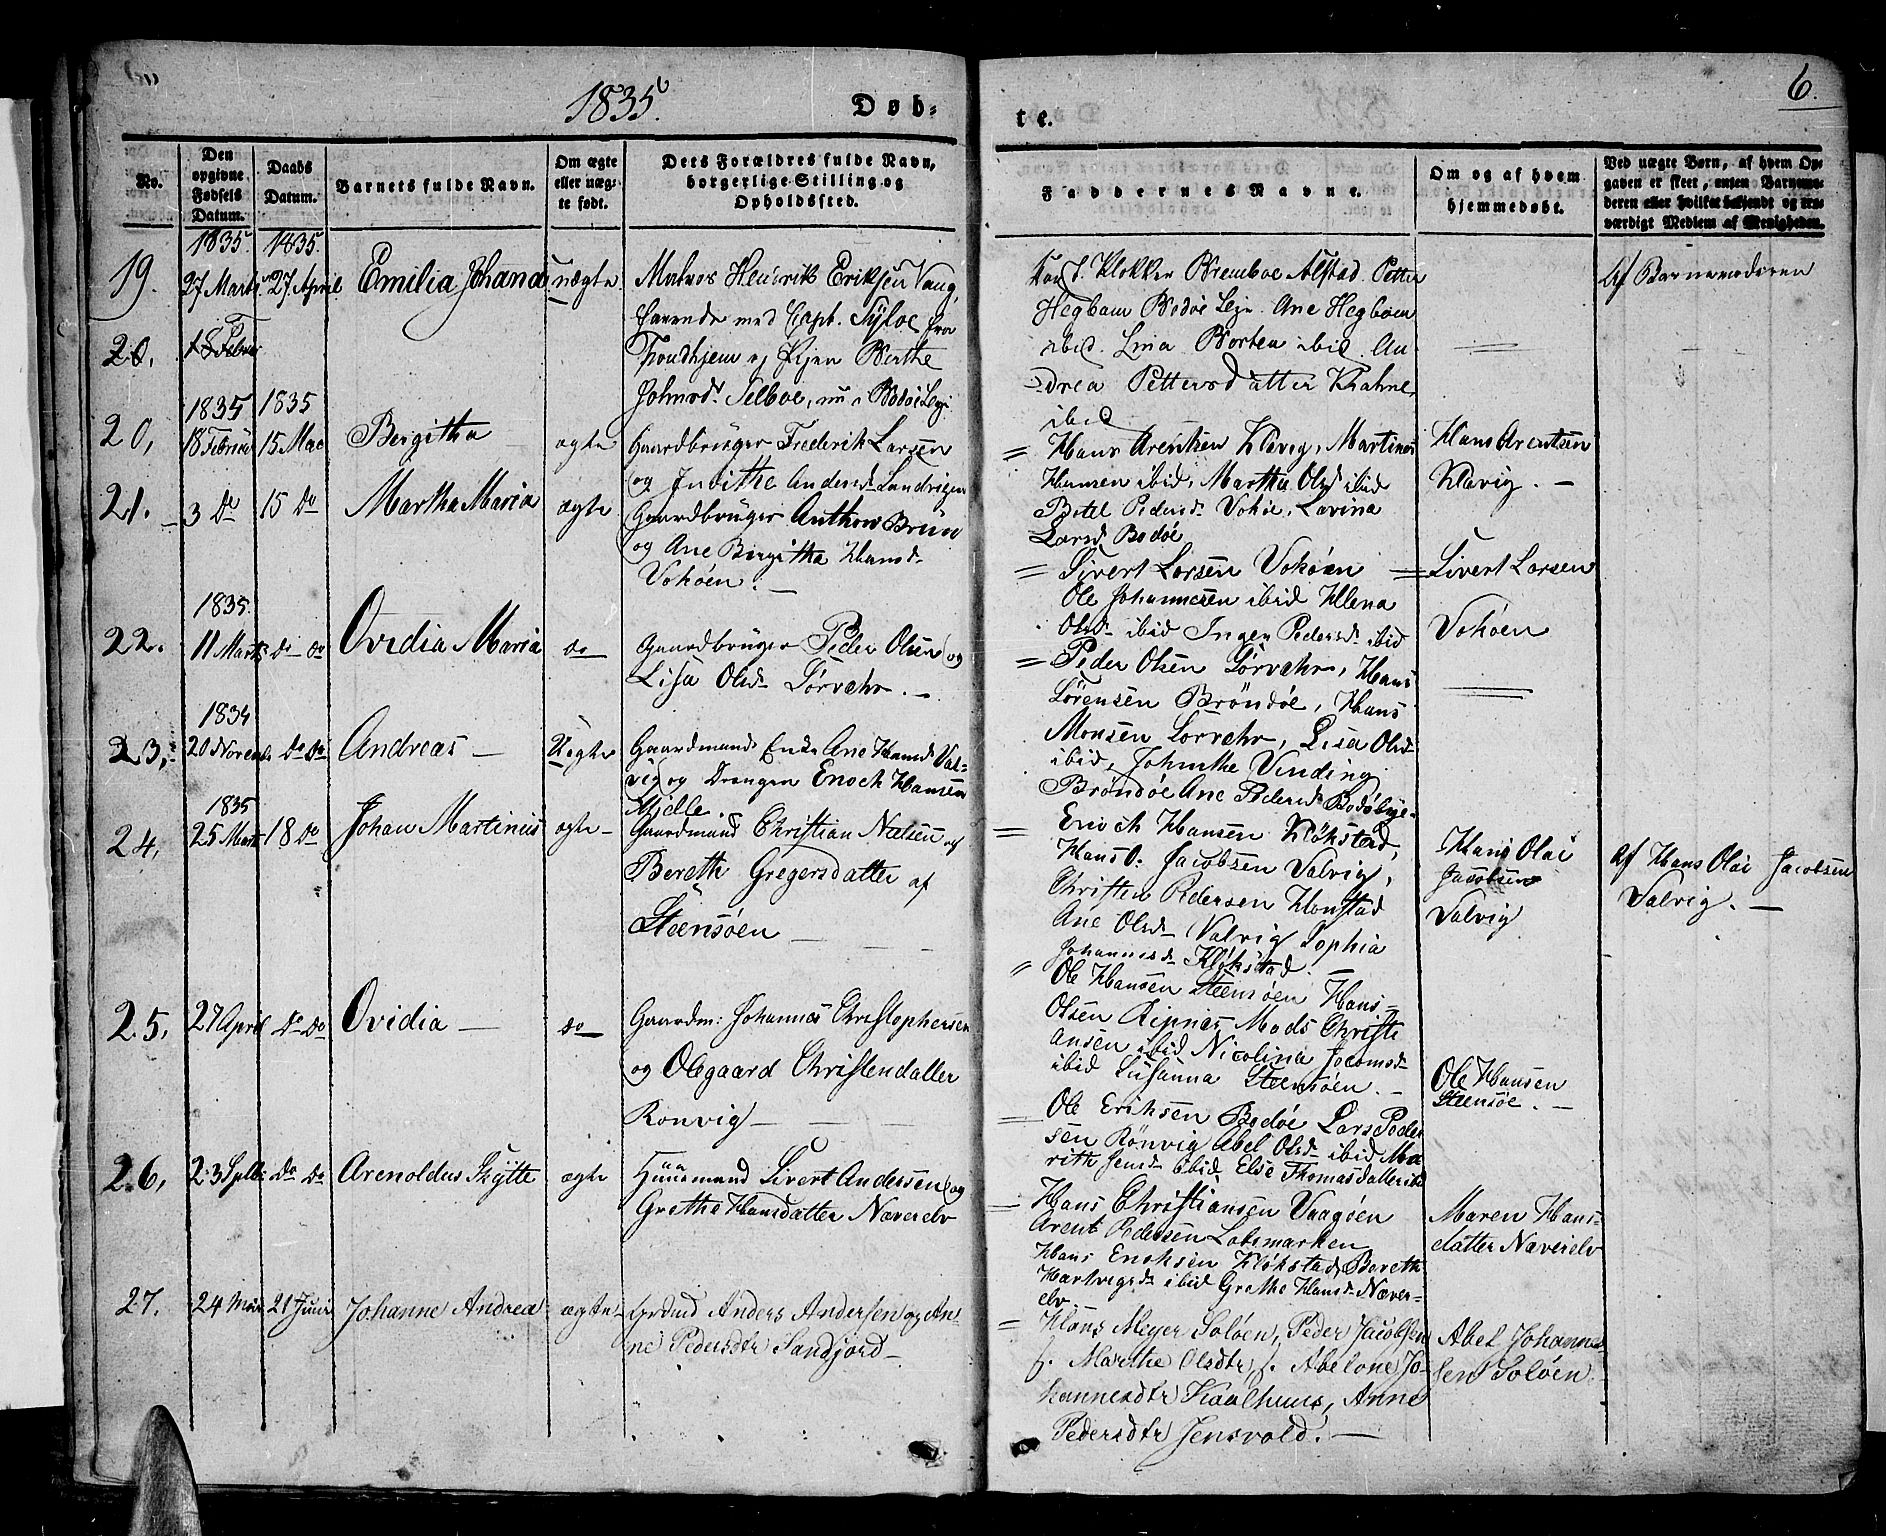 1835.
Døb-
No.
Den opgivne Fødsels Datum.
Daabs Datum.
Barnets fulde Navn.
Om ægte eller uægte født.
Dets Forældres fulde Navn, borgerlige Stilling og Opholdssted.
19.
1835 27 Marts
1835 27 April
Emilia Johana
uægte
Matros Henrik Eriksen Vang,
farende med Capt. Tyloe fra
Trondhjem og Pigen Berthe
Johnsd. Selboe, nu i Bodøe Leje
20.
18 Febru
20,
1835 18 Februar
1835 15 Mai
Bergitha
ægte
Gaardbruger Frederik Larsen
og Judithe Andersd. Landrigen
21.
3 Do
15 Do
Martha Maria
ægte
Gaardbruger Anthon Brun
og Ane Birgitha Hansd.
Vokøen. -
22.
1835. 11 Marts
Do Do
Ovidia Maria
do
Gaardbruger Peder Olsen og
Lisa Olsd. Sørvær. -
23,
1834 20 Novemb
Do Do
Andreas -
Uegte
Gaardmands Enke Ane Hansd. Val-
vig og Drengen Enoch Hansen
Mjelle.
24,
1835 25 Marts
18 Do
Johan Martinus
ægte -
Gaardmand Christian Nielsen og
Bereth Gregersdatter af
Steensøen -
25,
27 April
Do Do
Ovidia -
do
Gaardm: Johannes Christophersen
og Olegaard Christendatter
Rønvig -
26,
Do Do
Arenoldus Skytte
ægte
Huusmand Sivert Andersen og
Grethe Hansdatter Næverelv
27.
24 Mai
21 Juni
Johanne Andrea
ægte
Anders Andersen og An-
ne Pedersdtr Sandjord -
te.
6.
Faddernes Navne.
Om og af hvem hjemmedøbt.
Ved uægte Børn, af hvem Opgaven er skeet, enten Barnemoderen eller hvilket bekjendt og troværdigt Medlem af Menigheden.
Klokker Bremboe Alstad. Petter
Hegbom Bodøe Leje. Ane Hegbom
ibid. Lina Borten ibid. An-
drea Pettersdatter Krahne,
ibid
Af Barnemoderen
= Hans Arentsen Kløvig, Martinus
Hansen ibid, Martha Olsd ibid
Betel Pedersd. Vokøe, Lavina
Larsd Bodøe
Hans Arentsen
Kløvig. -
= Sivert Larsen Vokøen
Ole Johannesen ibid Ellena
Olsd. ibid Inger Pedersd. ibid
Sivert Larsen
Vokøen
= Peder Olsen Sørvær, Hans
Sørensen Brøndøe, Hans
Monsen Sørvær, Lisa Olsd.
ibid, Johnethe Vinding
Brøndøe Ane Pedersd. Bodøbye
= Enoch Hansen Kløkstad,
Hans O. Jacobsen Valvig,
Christen Pedersen Hopstad
Ane Olsd. Valvig Sophia
Johannesd. Kløkstad. -
Hans Olai
Jacobsen
Valvig
Af Hans Olai Jacobsen
Valvig. -
= Ole Hansen Steensøen Hans
Olsen Ripnæs Mads Christi
ansen ibid Nicolina Jacobsd.
ibid Susanna Steensøen. -
Ole Hansen
Steensøe. -
= Ole Eriksen Bodøe Lars Peder
sen Rønvig Abel Olsd. ibid Ma
rith Jensd. ibid Else Thomasdatter ibid
= Hans Christiansen Vaagøen
Arent Pedersen Løbsmarken
Hans Enoksen Kløkstad, Bereth
Hartvigsd. ibid Grethe Hansd. Næver-
elv.
Maren Hans-
datter Næverelv
= Hans Meyer Soløen, Peder Jacobsen
s. Marthe Olsdtr, s. Abelone Jo-
hannesdtr Kaalhuus, Anne
Pedersdtr Jensvold. -
Abel Johanne-
sen Soløen.